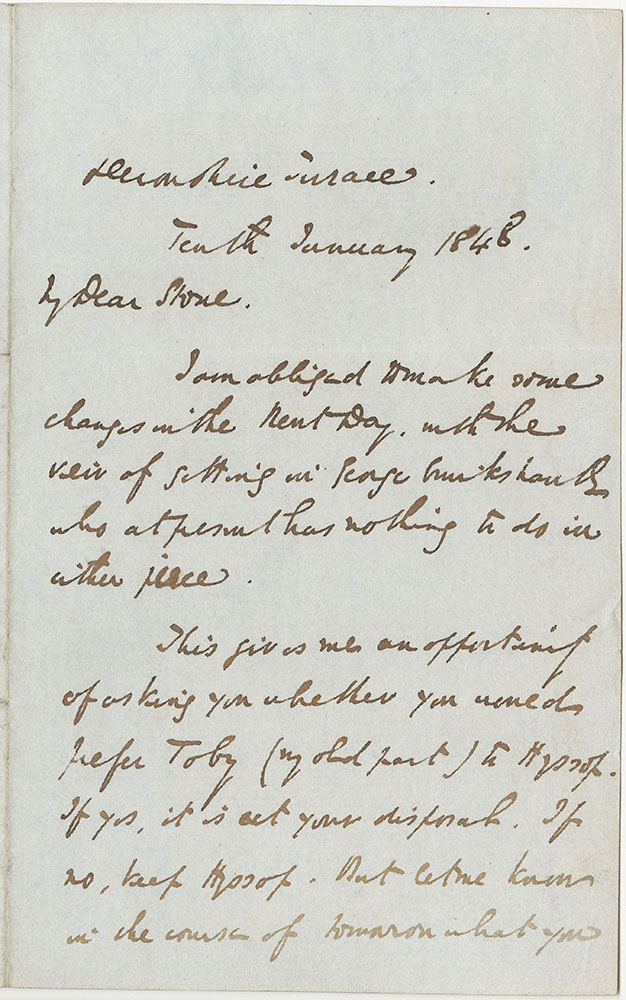 Devonshire Terrace.
Tenth January 1848.
My Dear Stone.
I am obliged to make some
changes in the Rent Day, with the
view of getting in George Cruikshank
who at present has nothing to do in
either piece.
This gives me an opportunity
of asking you whether you would
prefer Toby (my old part) to Hyssop.
If yes, it is at your disposal. If
no, keep Hyssop. But let me know
in the course of tomorrow what you